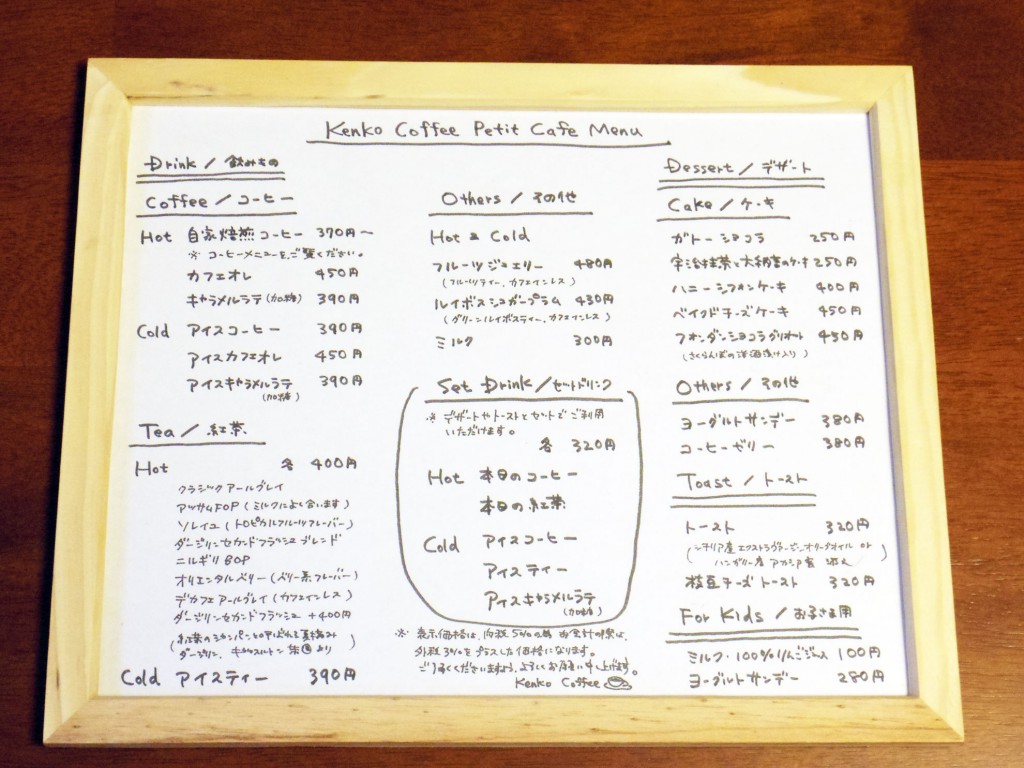 Kenko Coffee Petit Cafe Menu
Drink / 飲みもの
Coffee / コーヒー
Hot 自家焙煎コーヒー 370円〜
※ コーヒーメニューをご覧ください。
カフェオレ 450円
キャラメルラテ(加糖) 390円
Cold アイスコーヒー 390円
アイスカフェオレ 450円
アイスキャラメルラテ 390円
(加糖)
Tea / 紅茶
Hot 各 400円
クラシックアールグレイ
アッサムFOP (ミルクによく合います)
ソレイユ (トロピカルフルーツフレーバー)
ダージリンセカンドフラッシュブレンド
ニルギリ BOP
オリエンタルベリー (ベリー系フレーバー)
デカフェアールグレイ (カフェインレス)
ダージリンセカンドフラッシュ +400円
(紅茶のシャンパンと呼ばれる夏摘み
ダージリン. キャッスルトン茶園より)
Cold アイスティー 390円
Others / その他
Hot & Cold
フルーツジュエリー 480円
(フルーツティー. カフェインレス)
ルイボスシュガープラム 430円
(グリーンルイボスティー. カフェインレス)
ミルク 300円
Set Drink / セットドリンク
※ デザートやトーストとセットでご利用
いただけます。
各 320円
Hot 本日のコーヒー
本日の紅茶
Cold アイスコーヒー
アイスティー
アイスキャラメルラテ
(加糖)
※ 表示価格は、内税5%の為 お会計の際は、
外税3%をプラスした価格になります。
ご了承くださいますよう、よろしくお願い申し上げます。
Kenko Coffee
Dessert / デザート
Cake / ケーキ
ガトーショコラ 250円
宇治抹茶と大納言のケーキ 250円
ハニーシフォンケーキ 400円
ベイクドチーズケーキ 450円
フォンダンショコラグリオット 450円
(さくらんぼの洋酒漬け入り)
Others / その他
ヨーグルトサンデー 380円
コーヒーゼリー 380円
Toast / トースト
トースト 320円
(シチリア産エクストラヴァージンオリーブオイル or
ハンガリー産 アカシア蜜 添え)
枝豆チーズトースト 320円
For Kids / お子さま用
ミルク・100%りんごジュース 100円
ヨーグルトサンデー 280円